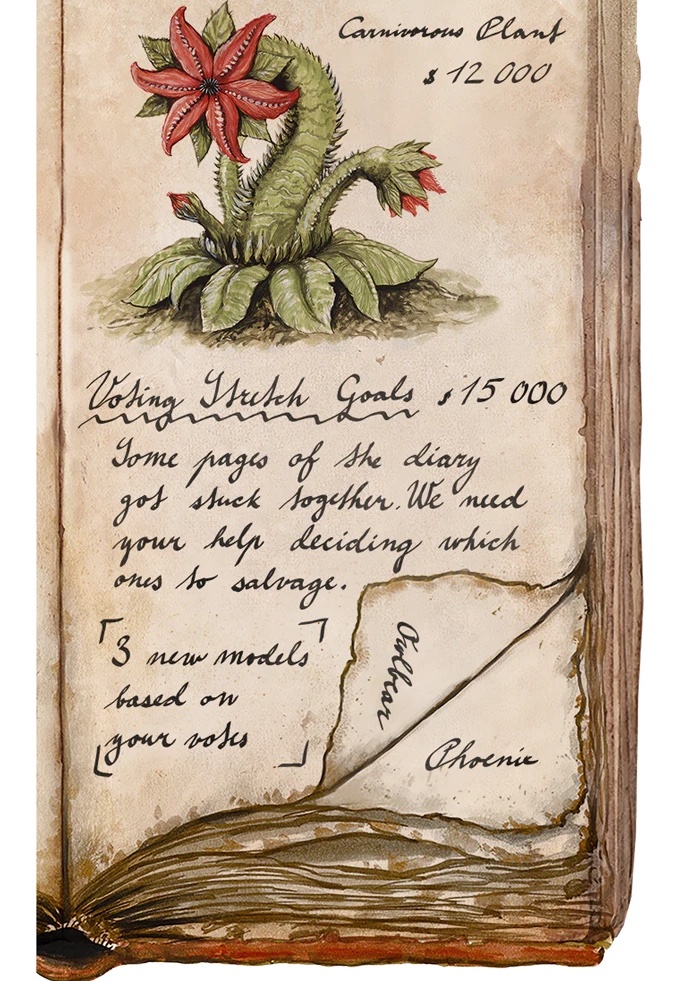 Carnivorous Plant
$ 12 000
Voting Stretch Goals $ 15 000
Some pages of the diary
got stuck together. We need
your help deciding which
ones to salvage.
3 new models
based on
your votes
Owlbear
Phoenix